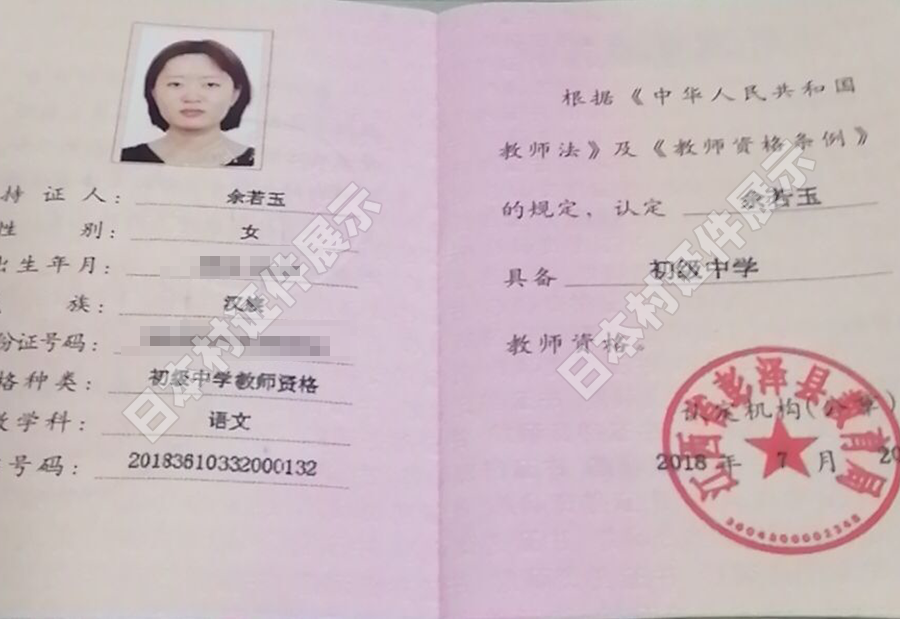 持证人： 余若玉
性别： 女
出生年月：
族： 汉族
份证号码：
格种类： 初级中学教师资格
教学科： 语文
号码： 20183610332000132
根据《中华人民共和国
教师法》及《教师资格条例》
的规定，认定 余若玉
具备 初级中学
教师资格。
认定机构(公章)
2018 年 7 月 20
江西省彭泽县教育局
日本村证件展示
日本村证件展示